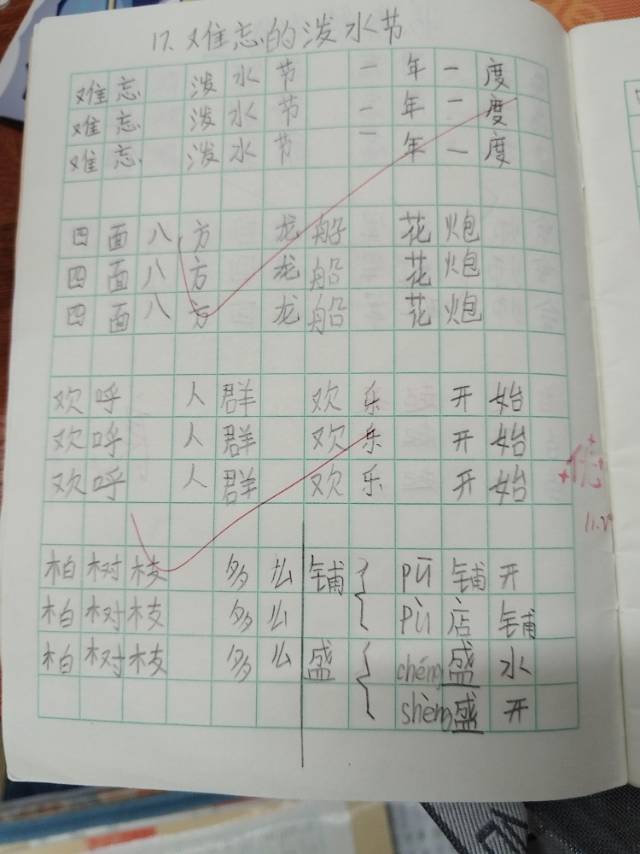 17. 难忘的泼水节
难忘 泼水节 一年一度
难忘 泼水节 一年一度
难忘 泼水节 一年一度
四面八方 龙船 花炮
四面八方 龙船 花炮
四面八方 龙船 花炮
欢呼 人群 欢乐 开始
欢呼 人群 欢乐 开始
欢呼 人群 欢乐 开始
优
柏树枝 多么 铺 { pū 铺开
柏树枝 多么 pù 店铺
柏树枝 多么 盛 { chéng 盛水
shèng 盛开